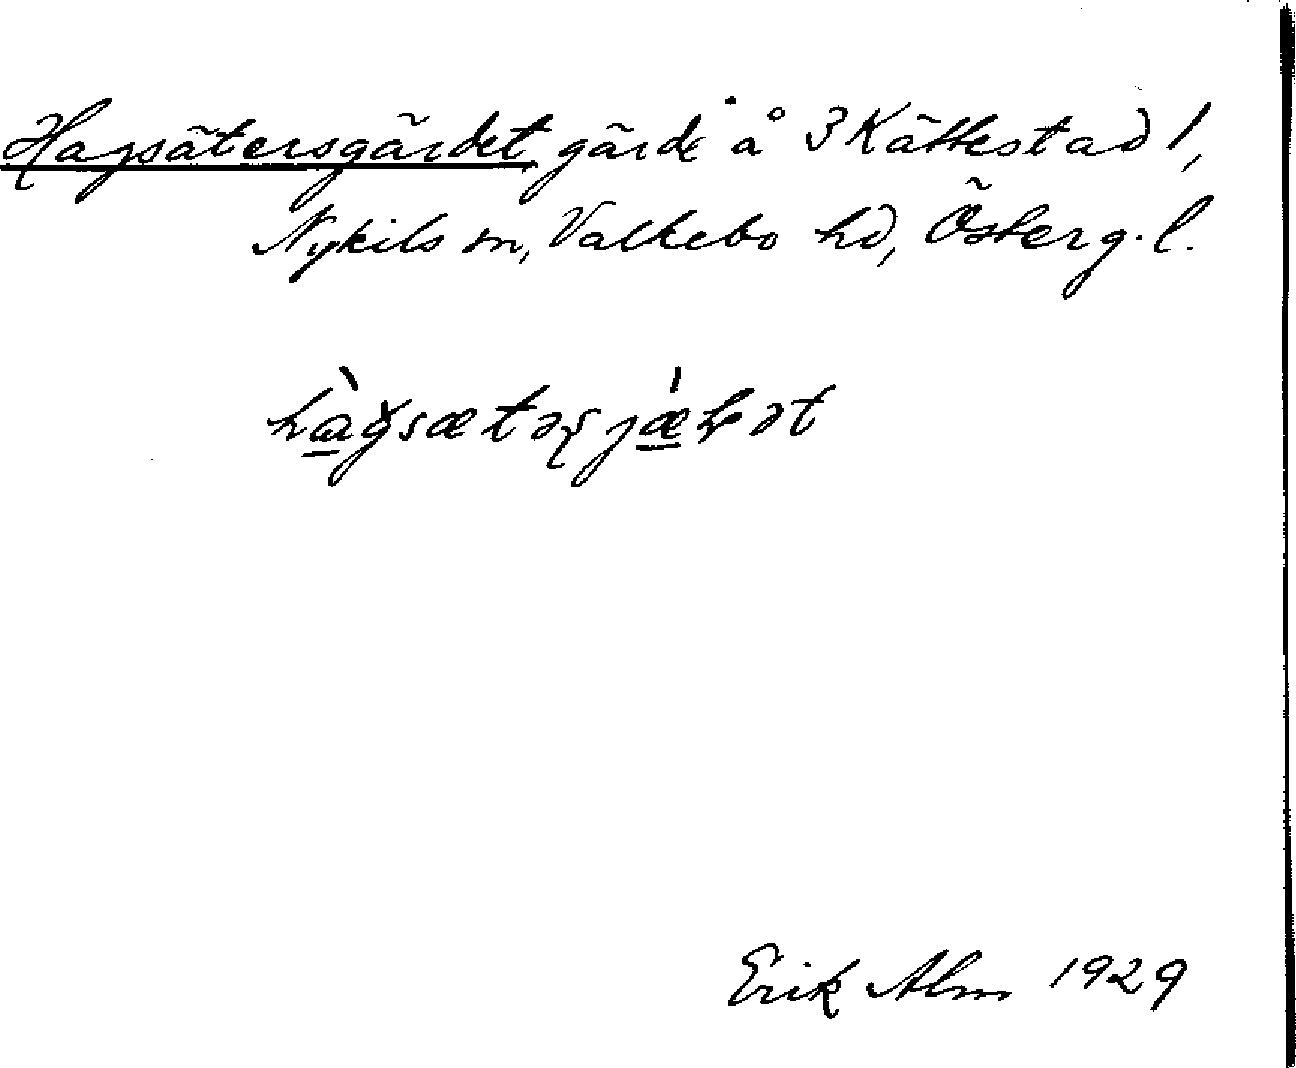 Hagsätersgärdet gärde å 3 Kättestad 1,
Nykils sn, Valkebo hd, Österg. l.
Erik Alm 1929